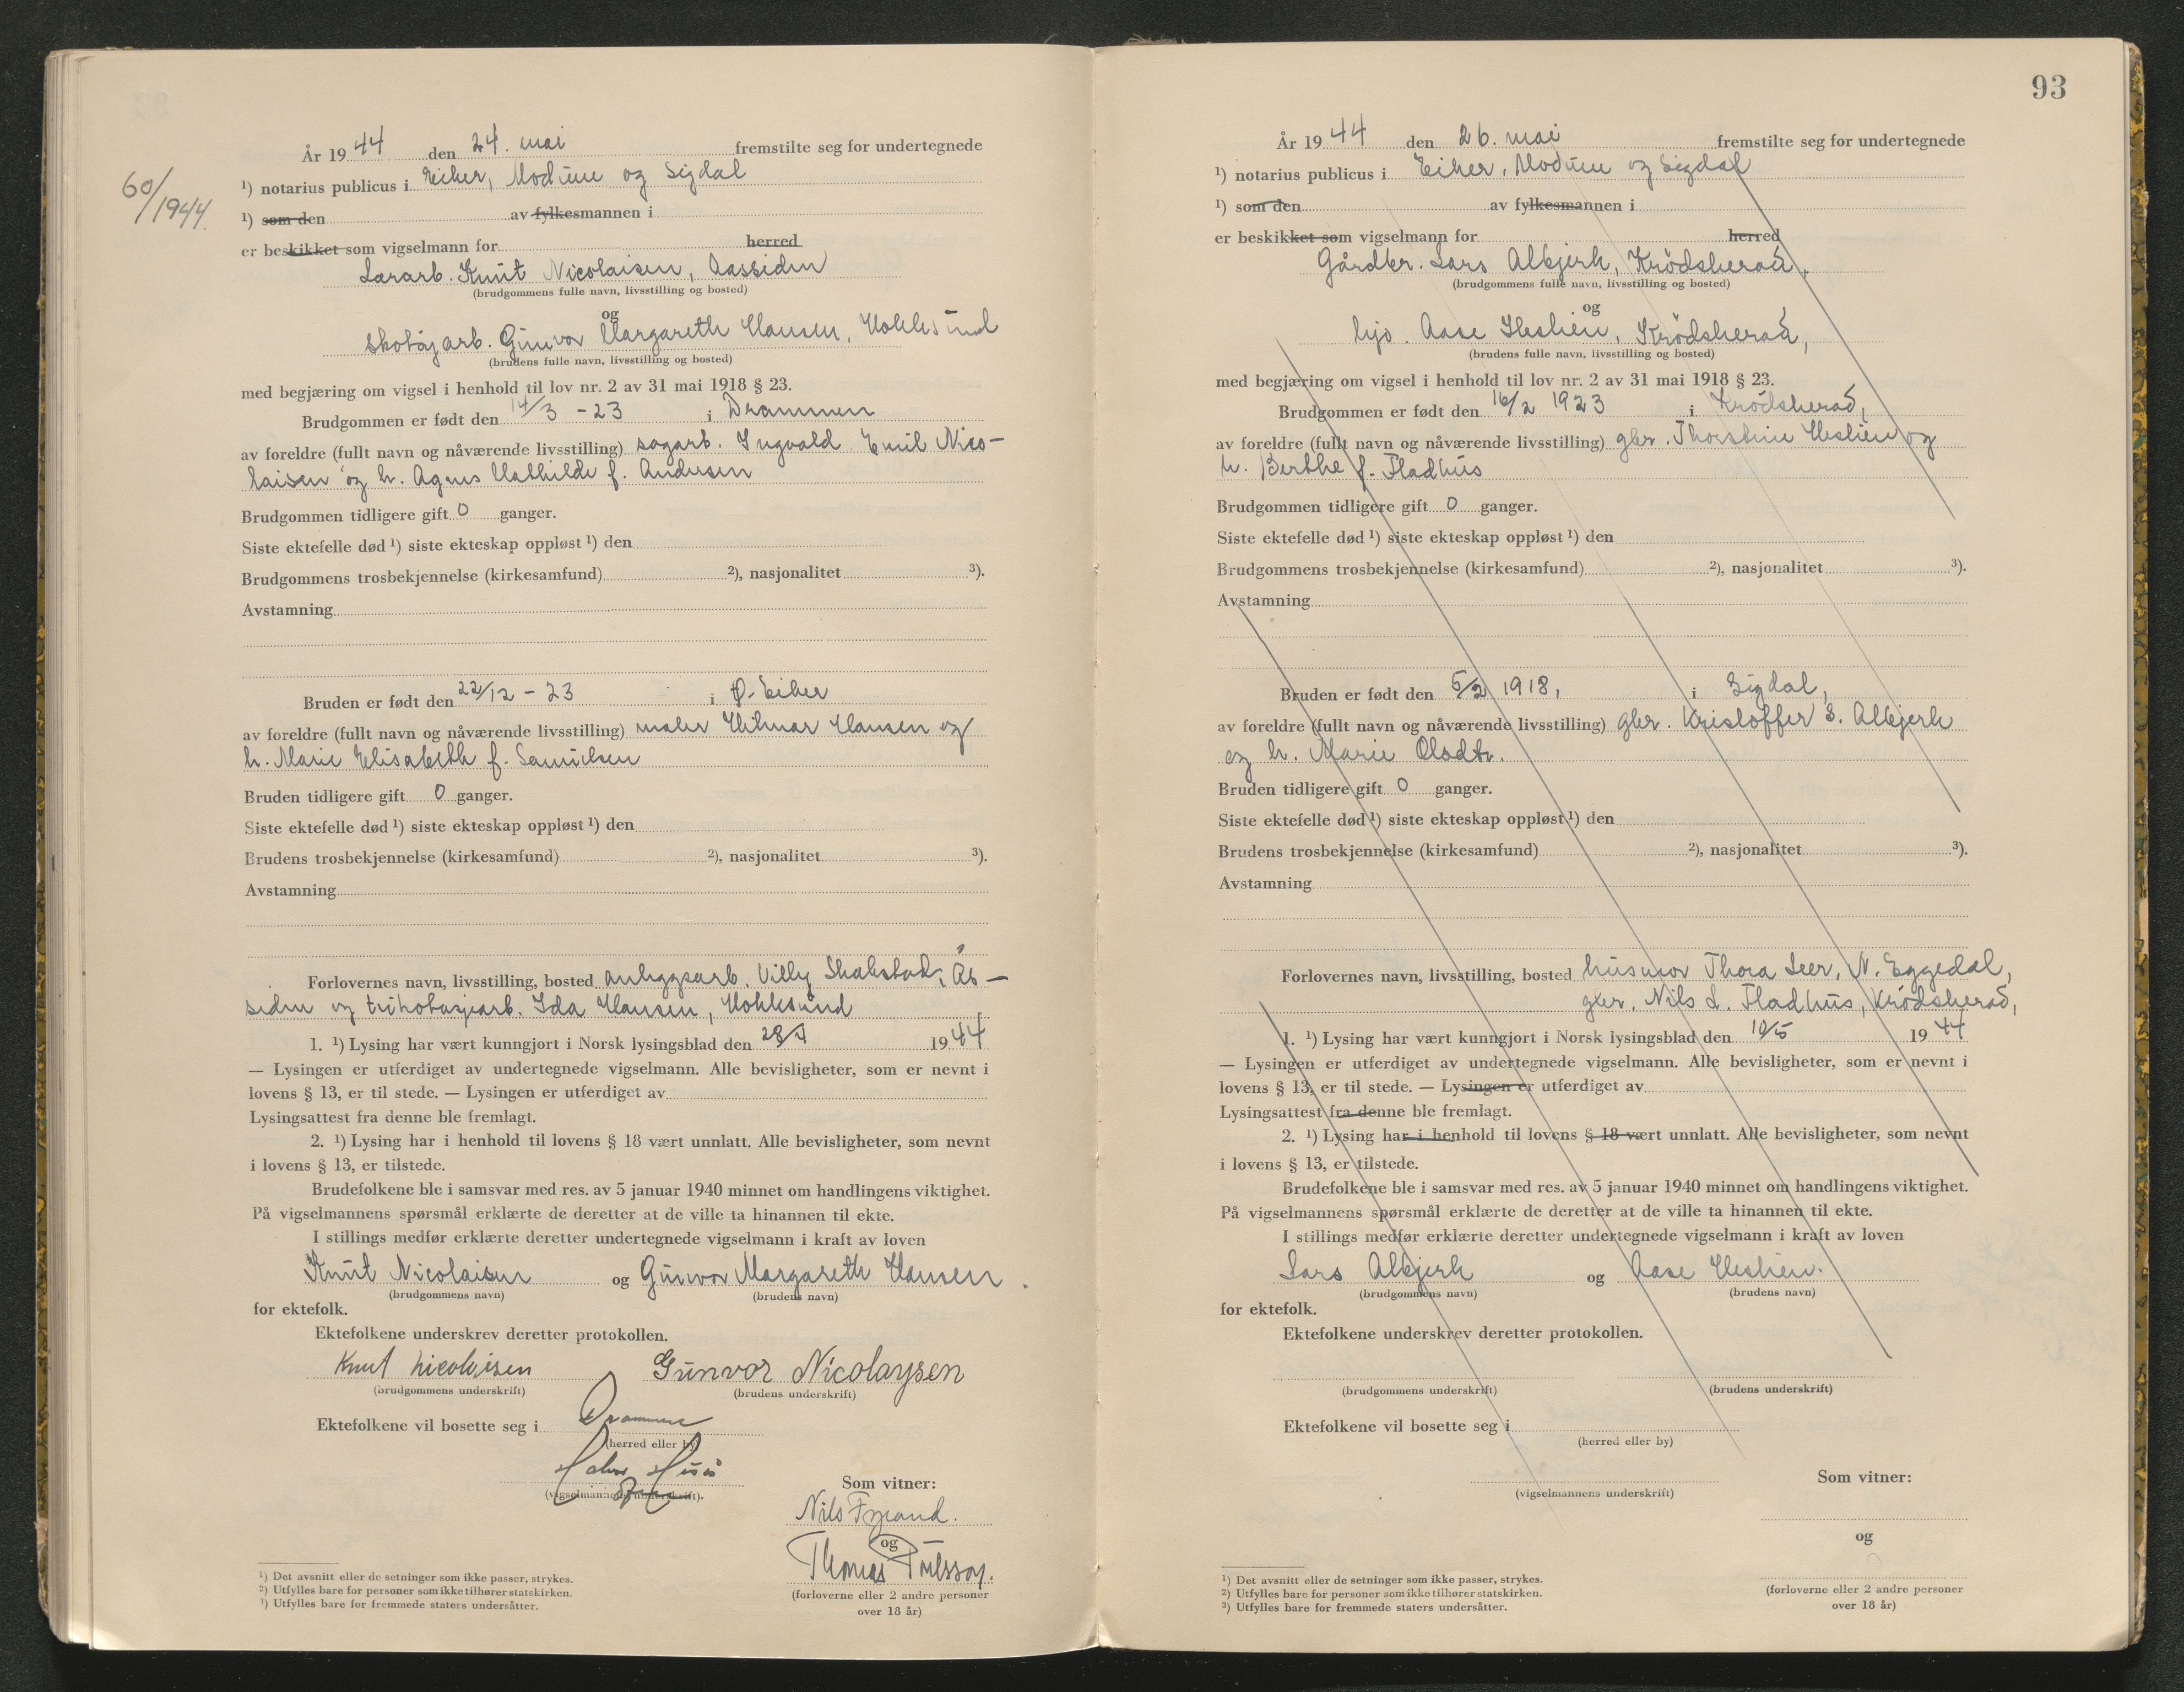 60/1944.
År 1944 den 24. mai fremstilte seg for undertegnede
¹) notarius publicus i Eiker, Modum og Sigdal
¹) som den av fylkesmannen i
er beskikket som vigselmann for herred
Lærarb. Knut Nicolaisen, Aassiden
(brudgommens fulle navn, livsstilling og bosted)
og
skotøjarb. Gunvor Margareth Hansen, Hokksund
(brudens fulle navn, livsstilling og bosted)
med begjæring om vigsel i henhold til lov nr. 2 av 31 mai 1918 § 23.
Brudgommen er født den 14/3 - 23 i Drammen
av foreldre (fullt navn og nåværende livsstilling) sagarb. Ingvald Emil Nico-
laisen og h. Agnes Mathilde f. Andersen
Brudgommen tidligere gift 0 ganger.
Siste ektefelle død ¹) siste ekteskap oppløst ¹) den
Brudgommens trosbekjennelse (kirkesamfund) ²), nasjonalitet ³).
Avstamning
Bruden er født den 22/12 - 23 i Ø. Eiker
av foreldre (fullt navn og nåværende livsstilling) maler Hilmar Hansen og
h. Marie Elisabeth f. Samuelsen
Bruden tidligere gift 0 ganger.
Siste ektefelle død ¹) siste ekteskap oppløst ¹) den
Brudens trosbekjennelse (kirkesamfund) ²), nasjonalitet ³).
Avstamning
Forlovernes navn, livsstilling, bosted anleggsarb. Villy Skalstad, Ås-
siden og trikotasjearb. Ida Hansen, Hokksund
1. ¹) Lysing har vært kunngjort i Norsk lysingsblad den 1944
— Lysingen er utferdiget av undertegnede vigselmann. Alle bevisligheter, som er nevnt i
lovens § 13, er til stede. — Lysingen er utferdiget av
Lysingsattest fra denne ble fremlagt.
2. ¹) Lysing har i henhold til lovens § 18 vært unnlatt. Alle bevisligheter, som nevnt
i lovens § 13, er tilstede.
Brudefolkene ble i samsvar med res. av 5 januar 1940 minnet om handlingens viktighet.
På vigselmannens spørsmål erklærte de deretter at de ville ta hinannen til ekte.
I stillings medfør erklærte deretter undertegnede vigselmann i kraft av loven
Knut Nicolaisen og Gunvor Margareth Hansen.
(brudgommens navn) (brudens navn)
for ektefolk.
Ektefolkene underskrev deretter protokollen.
Knut Nicolaisen Gunvor Nicolaysen
(brudgommens underskrift) (brudens underskrift)
Ektefolkene vil bosette seg i Drammen
(herred eller by)
(vigselmannens underskrift).
Som vitner:
Nils Fyrand.
og
Thomas
(forloverne eller 2 andre personer
over 18 år)
¹) Det avsnitt eller de setninger som ikke passer, strykes.
²) Utfylles bare for personer som ikke tilhører statskirken.
³) Utfylles bare for fremmede staters undersåtter.
93
År 1944 den 26. mai fremstilte seg for undertegnede
¹) notarius publicus i Eiker, Modum og Sigdal
¹) som den av fylkesmannen i
er beskikket som vigselmann for herred
Gårdbr. Lars Albjerk, Krødsherad.
(brudgommens fulle navn, livsstilling og bosted)
og
hjo. Aase Heslien, Krødsherad,
(brudens fulle navn, livsstilling og bosted)
med begjæring om vigsel i henhold til lov nr. 2 av 31 mai 1918 § 23.
Brudgommen er født den 16/2 1923 i Krødsherad,
av foreldre (fullt navn og nåværende livsstilling) gbr. Thorstein Heslien og
h. Berthe f. Fladhus
Brudgommen tidligere gift 0 ganger.
Siste ektefelle død ¹) siste ekteskap oppløst ¹) den
Brudgommens trosbekjennelse (kirkesamfund) ²), nasjonalitet ³).
Avstamning
Bruden er født den 5/2 1918, i Sigdal,
av foreldre (fullt navn og nåværende livsstilling) gbr. Kristoffer S. Albjerk
og h. Marie Olsdtr.
Bruden tidligere gift 0 ganger.
Siste ektefelle død ¹) siste ekteskap oppløst ¹) den
Brudens trosbekjennelse (kirkesamfund) ²), nasjonalitet ³).
Avstamning
Forlovernes navn, livsstilling, bosted husmor Thora Leer, N. Eggedal,
gbr. Nils L. Fladhus, Krødsherad,
1. ¹) Lysing har vært kunngjort i Norsk lysingsblad den 10/5 1944
— Lysingen er utferdiget av undertegnede vigselmann. Alle bevisligheter, som er nevnt i
lovens § 13, er til stede. — Lysingen er utferdiget av
Lysingsattest fra denne ble fremlagt.
2. ¹) Lysing har i henhold til lovens § 18 vært unnlatt. Alle bevisligheter, som nevnt
i lovens § 13, er tilstede.
Brudefolkene ble i samsvar med res. av 5 januar 1940 minnet om handlingens viktighet.
På vigselmannens spørsmål erklærte de deretter at de ville ta hinannen til ekte.
I stillings medfør erklærte deretter undertegnede vigselmann i kraft av loven
Lars Albjerk og Aase Heslien.
(brudgommens navn) (brudens navn)
for ektefolk.
Ektefolkene underskrev deretter protokollen.
(brudgommens underskrift) (brudens underskrift)
Ektefolkene vil bosette seg i
(herred eller by)
(vigselmannens underskrift)
Som vitner:
og
(forloverne eller 2 andre personer
over 18 år)
¹) Det avsnitt eller de setninger som ikke passer, strykes.
²) Utfylles bare for personer som ikke tilhører statskirken.
³) Utfylles bare for fremmede staters undersåtter.